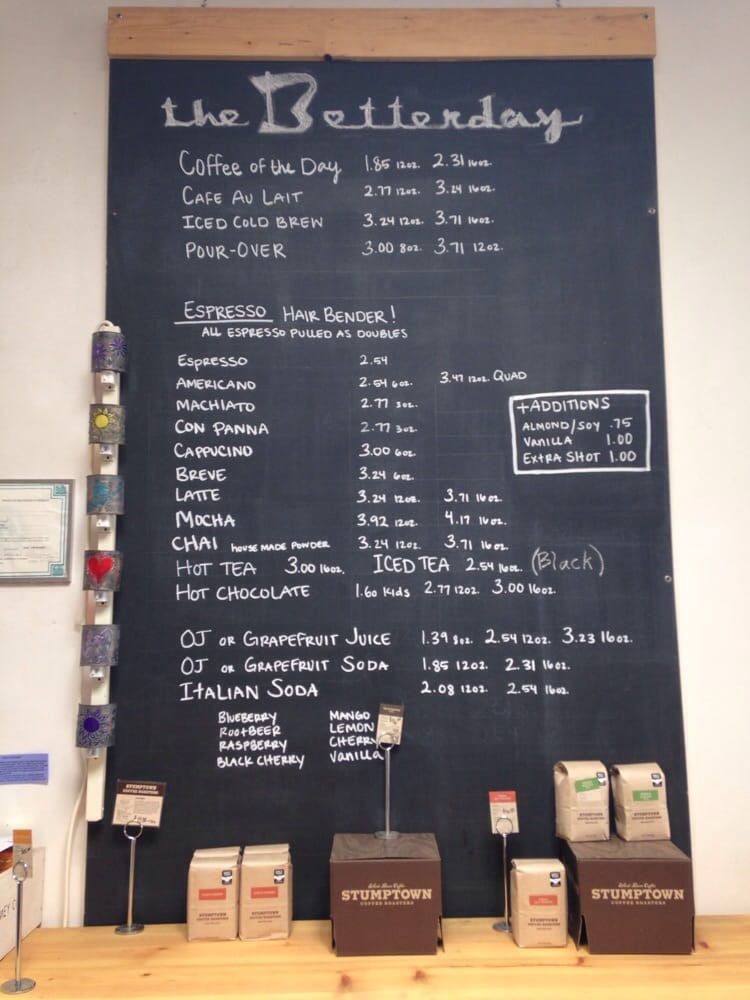 the Betterday
Coffee of the Day 1.85 12oz. 2.31 16oz.
CAFE AU LAIT 2.77 12oz. 3.24 16oz.
ICED COLD BREW 3.24 12oz. 3.71 16oz.
POUR-OVER 3.00 8oz. 3.71 12oz.
ESPRESSO HAIR BENDER!
ALL ESPRESSO PULLED AS DOUBLES
ESPRESSO 2.54
AMERICANO 2.54 6oz. 3.47 12oz. QUAD
MACHIATO 2.77 3oz.
CON PANNA 2.77 3oz.
CAPPUCINO 3.00 6oz.
BREVE 3.24 6oz.
LATTE 3.24 12oz. 3.71 16oz.
MOCHA 3.92 12oz. 4.17 16oz.
CHAI HOUSE MADE POWDER 3.24 12oz. 3.71 16oz.
HOT TEA 3.00 16oz. ICED TEA 2.54 16oz. (Black)
HOT CHOCOLATE 1.60 Kids 2.77 12oz. 3.00 16oz.
+ADDITIONS
ALMOND/SOY .75
VANILLA 1.00
EXTRA SHOT 1.00
OJ OR GRAPEFRUIT JUICE 1.39 8oz. 2.54 12oz. 3.23 16oz.
OJ OR GRAPEFRUIT SODA 1.85 12oz. 2.31 16oz.
ITALIAN SODA 2.08 12oz. 2.54 16oz.
BLUEBERRY MANGO
ROOTBEER LEMON
RASPBERRY CHERRY
BLACK CHERRY Vanilla
STUMPTOWN
COFFEE ROASTERS
STUMPTOWN
STUMPTOWN
STUMPTOWN
COFFEE ROASTERS
STUMPTOWN
STUMPTOWN
STUMPTOWN
STUMPTOWN
COFFEE ROASTERS